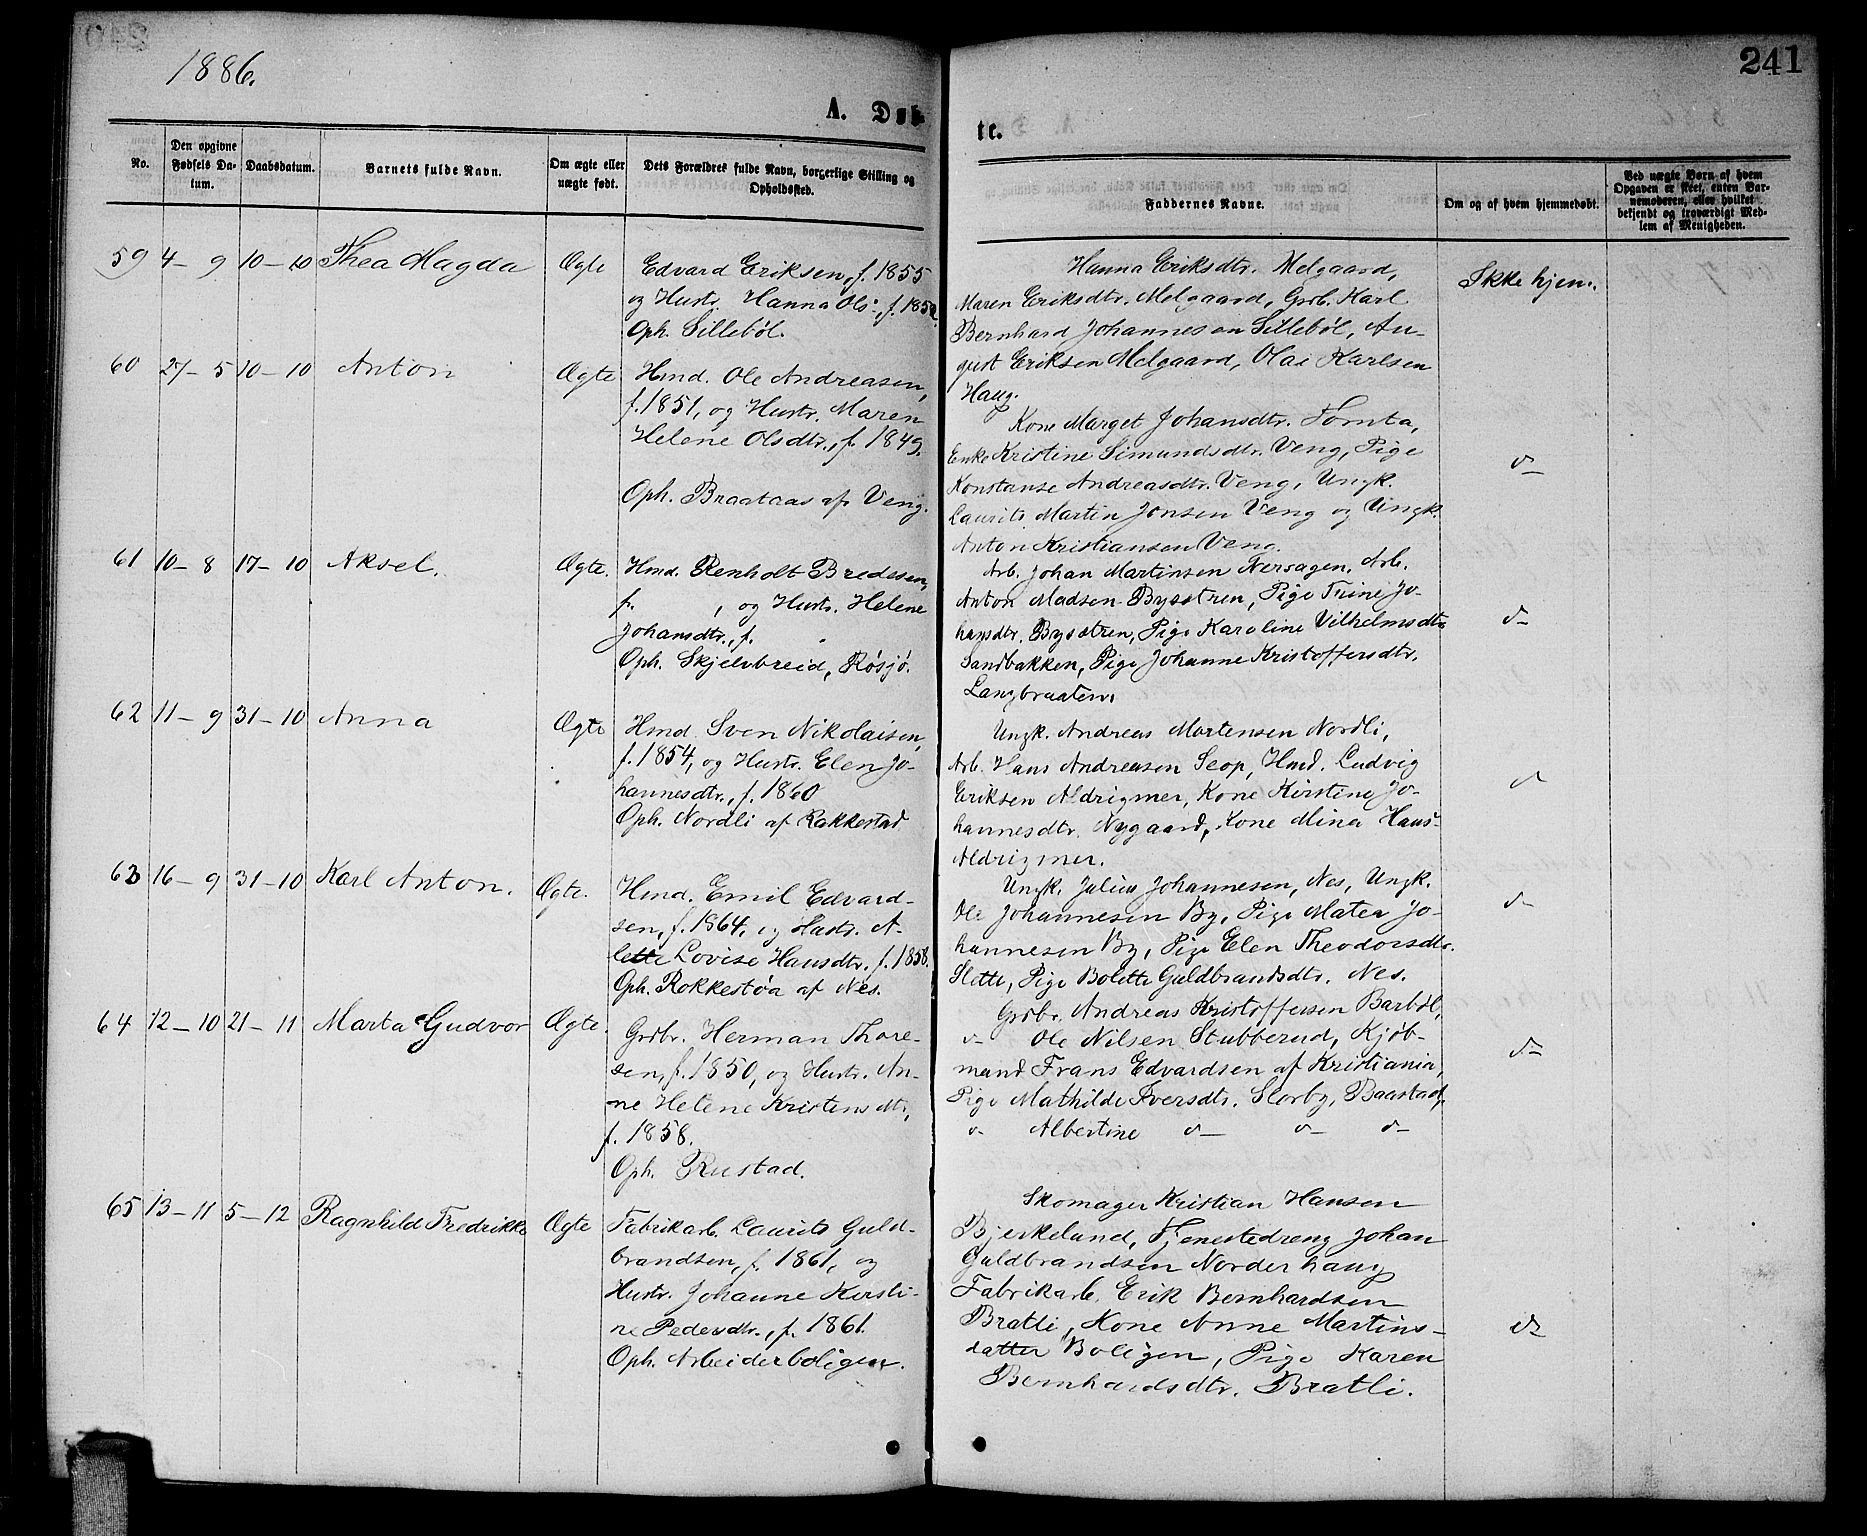 1886.
241
A. Døb-
te.
No.
Den opgivne Fødsels Da-tum.
Daabsdatum.
Barnets fulde Navn.
Om ægte eller uægte født.
Dets Forældres fulde Navn, borgerlige Stilling og Opholdssted.
Faddernes Navne.
Om og af hvem hjemmedøbt.
Ved uægte Børn af hvem Opgaven er skeet, enten Bar-nemoderen, eller hvilket bekjendt og troværdigt Med-lem af Menigheden.
59 4-9 10-10 Thea Magda Ægte
Edvard Eriksen, f. 1855
og Hustr. Hanna Ols-, f. 1852.
Oph. Sillebøl.
Hanna Eriksdtr. Melgaard,
Maren Eriksdtr. Melgaard, Grb. Karl
Bernhard Johannesen Sillebøl, Au-
gust Eriksen Melgaard, Olai Karlsen
Haug.
Ikke hjem.
60 27-5 10-10 Anton Ægte
Hmd. Ole Andreasen,
f. 1851, og Hustr. Maren
Helene Olsdtr., f. 1849.
Oph. Braataas af Veng.
Kone Marget Johansdtr. Tomta,
Enke Kristine Simundsdtr. Veng, Pige
Konstanse Andreasdtr. Veng, Ungk.
Laurits Martin Jonsen Veng og Ungk.
Anton Kristiansen Veng.
d-
61 10-8 17-10 Aksel. Ægte.
Hmd. Renholt Bredesen,
f. , og Hustr. Helene
Johansdtr., f.
Oph. Skjelvbreid, Røsjø.
Arb. Johan Martinsen Nersagen, Arb.
Anton Madsen Bysstren, Pige Trine Jo-
hansdtr. Bysstren, Pige Karoline Vilhelmsdtr.
Sandbakken, Pige Johanne Kristoffersdtr.
Langbraaten.
d-
62 11-9 31-10 Anna Ægte
Hmd. Sven Nikolaisen,
f. 1854, og Hustr. Elen Jo-
hannesdtr., f. 1860
Oph. Nordli af Rakkestad
Ungk. Andreas Martensen Nordli,
Arb. Hans Andreasen Seop, Hmd. Ludvig
Eriksen Aldrigmer, Kone Kirstine Jo-
hannesdtr. Nygaard, Kone Mina Hans-
Aldrigmer.
d
63 16-9 31-10 Karl Anton. Ægte.
Hmd. Emil Edvard-
sen, f. 1864, og Hustr. A-
lette Lovise Hansdtr. f. 1858.
Oph. Rokkestøa af Nes.
Ungk. Julius Johannesen, Nes, Ungk.
Ole Johannesen By, Pige Matea Jo-
hannesen By, Pige Elen Theodorsdtr.
Slette, Pige Bolette Guldbrandsdtr. Nes.
d-
64 12-10 21-11 Marta Gudvor Ægte.
Grdbr. Herman Thore-
sen, f. 1850, og Hustr. An-
ne Helene Kristensdtr.,
f. 1858.
Oph. Rustad.
Grdbr. Andreas Kristoffersen Barbøl,
d- Ole Nilsen Stubberud, Kjøb-
mand Frans Edvardsen af Kristiania,
Pige Mathilde Iversdtr. Slorby, Baastad,
d- Albertine d- d- d-
d-
65 13-11 5-12 Ragnhild Fredrikke Ægte
Fabrikarb. Laurits Guld-
brandsen, f. 1861, og
Hustr. Johanne Kirsti-
ne Pedersdtr., f. 1861.
Oph. Arbeiderboligen.
Skomager Kristian Hansen
Bjerkelund, Tjenestedreng Johan
Guldbrandsen Norderhaug
Fabrikarb. Erik Bernhardsen
Bratli, Kone Anne Martins-
datter Boligen, Pige Karen
Bernhardsdtr. Bratli.
d-